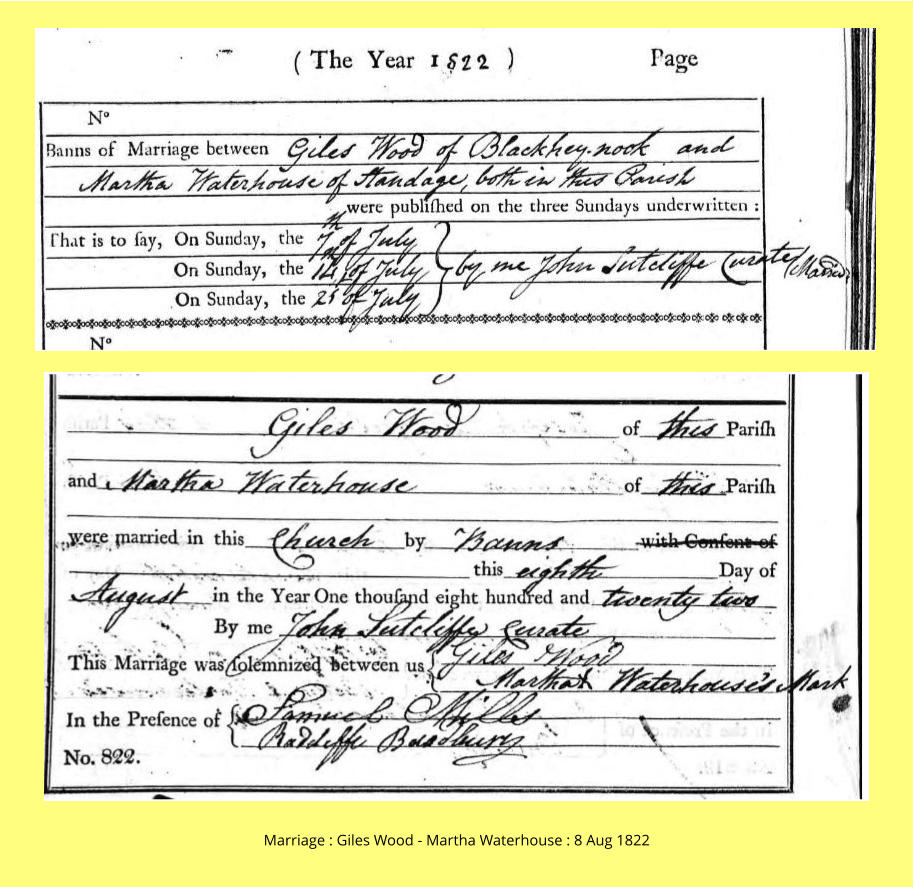 ( The Year 1822 ) Page
Nº
Banns of Marriage between Giles Wood of Blackhey-nook and
Martha Waterhouse of Standage, both in this Parish
were publiſhed on the three Sundays underwritten :
That is to ſay, On Sunday, the 7th of July
On Sunday, the 14th of July by me John Sutcliffe Curate (Married)
On Sunday, the 21st of July
Nº
Giles Wood of this Pariſh
and Martha Waterhouse of this Pariſh
were married in this Church by Banns with Conſent of
this eighth Day of
August in the Year One thouſand eight hundred and twenty two
By me John Sutcliffe Curate
This Marriage was ſolemnized between us Giles Wood
Martha X Waterhouse's Mark
In the Preſence of Samuel Mills
Radcliffe Bradbury
No. 822.
Marriage : Giles Wood - Martha Waterhouse : 8 Aug 1822